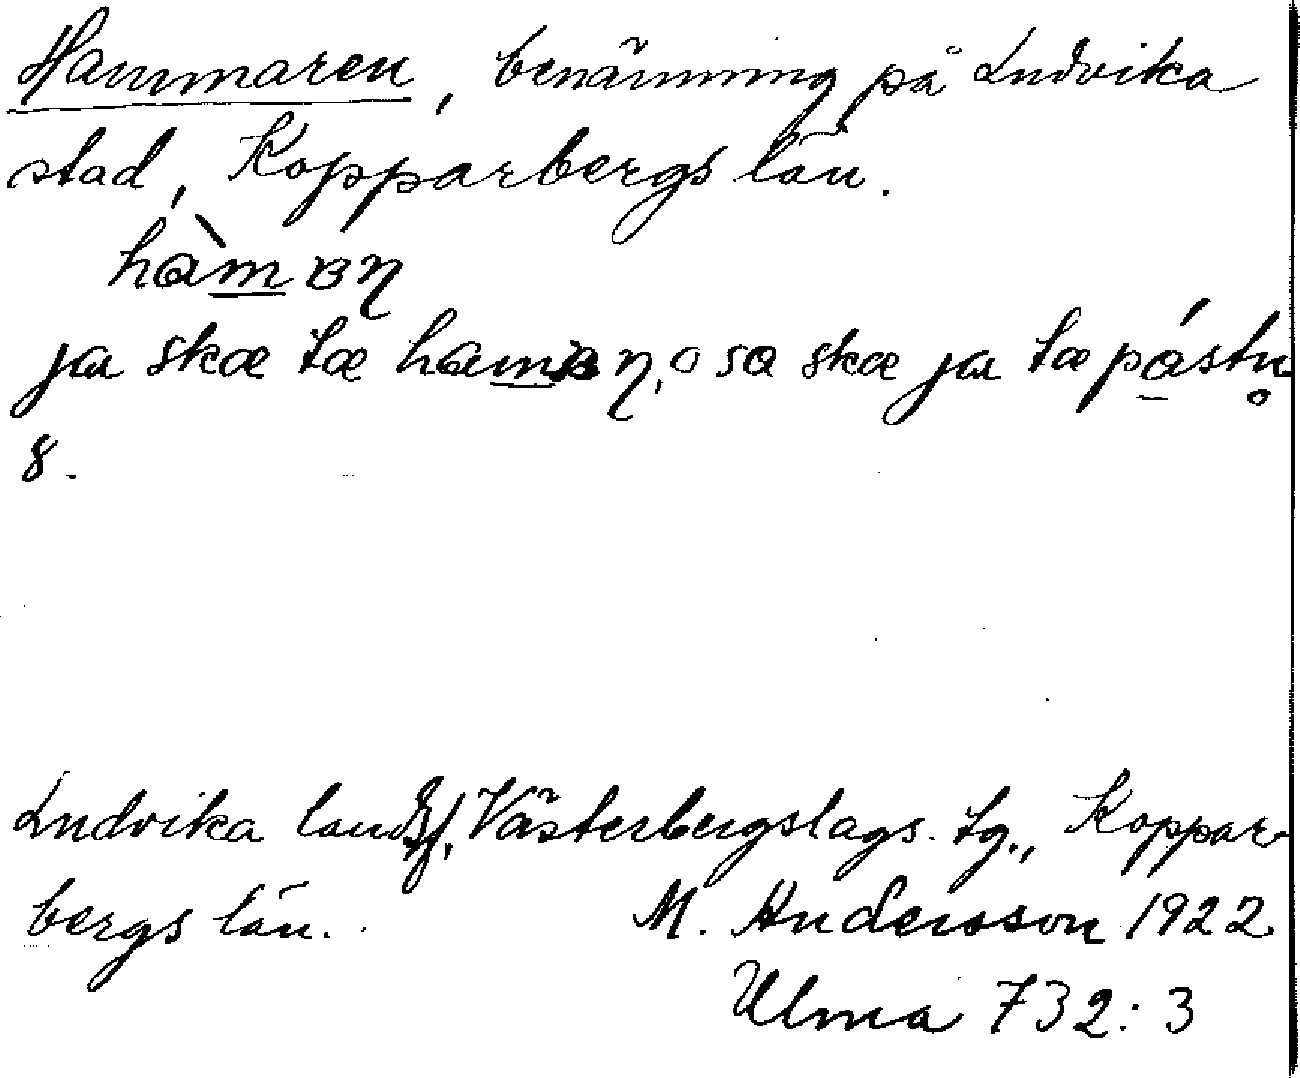 Hammaren, benämning på Ludvika
stad, Kopparbergs län.
hàmʙη
ja skæ tæ hamʙη, o sɑ skæ ja tæ pástu̥
8.
Ludvika landsf, Västerbergslags tg., Koppar-
bergs län. M. Andersson 1922
Ulma 732:3